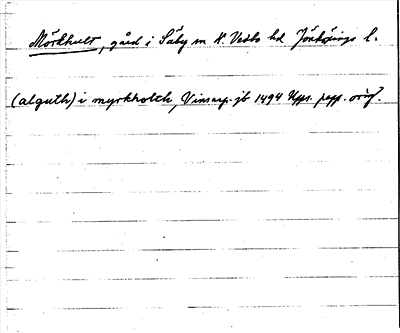 Mörkhult, gård i Säby sn N. Vedbo hd Jönköpings l.
(alguth) i myrkholth, Vinsarp. jb 1494 Upps. papp. orig.